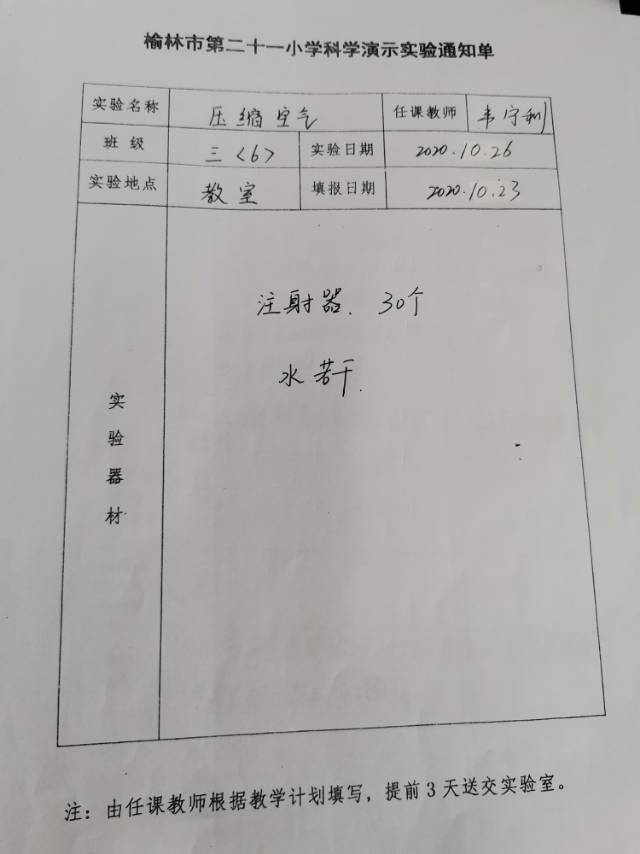 榆林市第二十一小学科学演示实验通知单
实验名称 压缩空气 任课教师 韦守利
班级 三<6> 实验日期 2020.10.26
实验地点 教室 填报日期 2020.10.23
实验器材
注射器. 30个
水若干.
注：由任课教师根据教学计划填写，提前3天送交实验室。